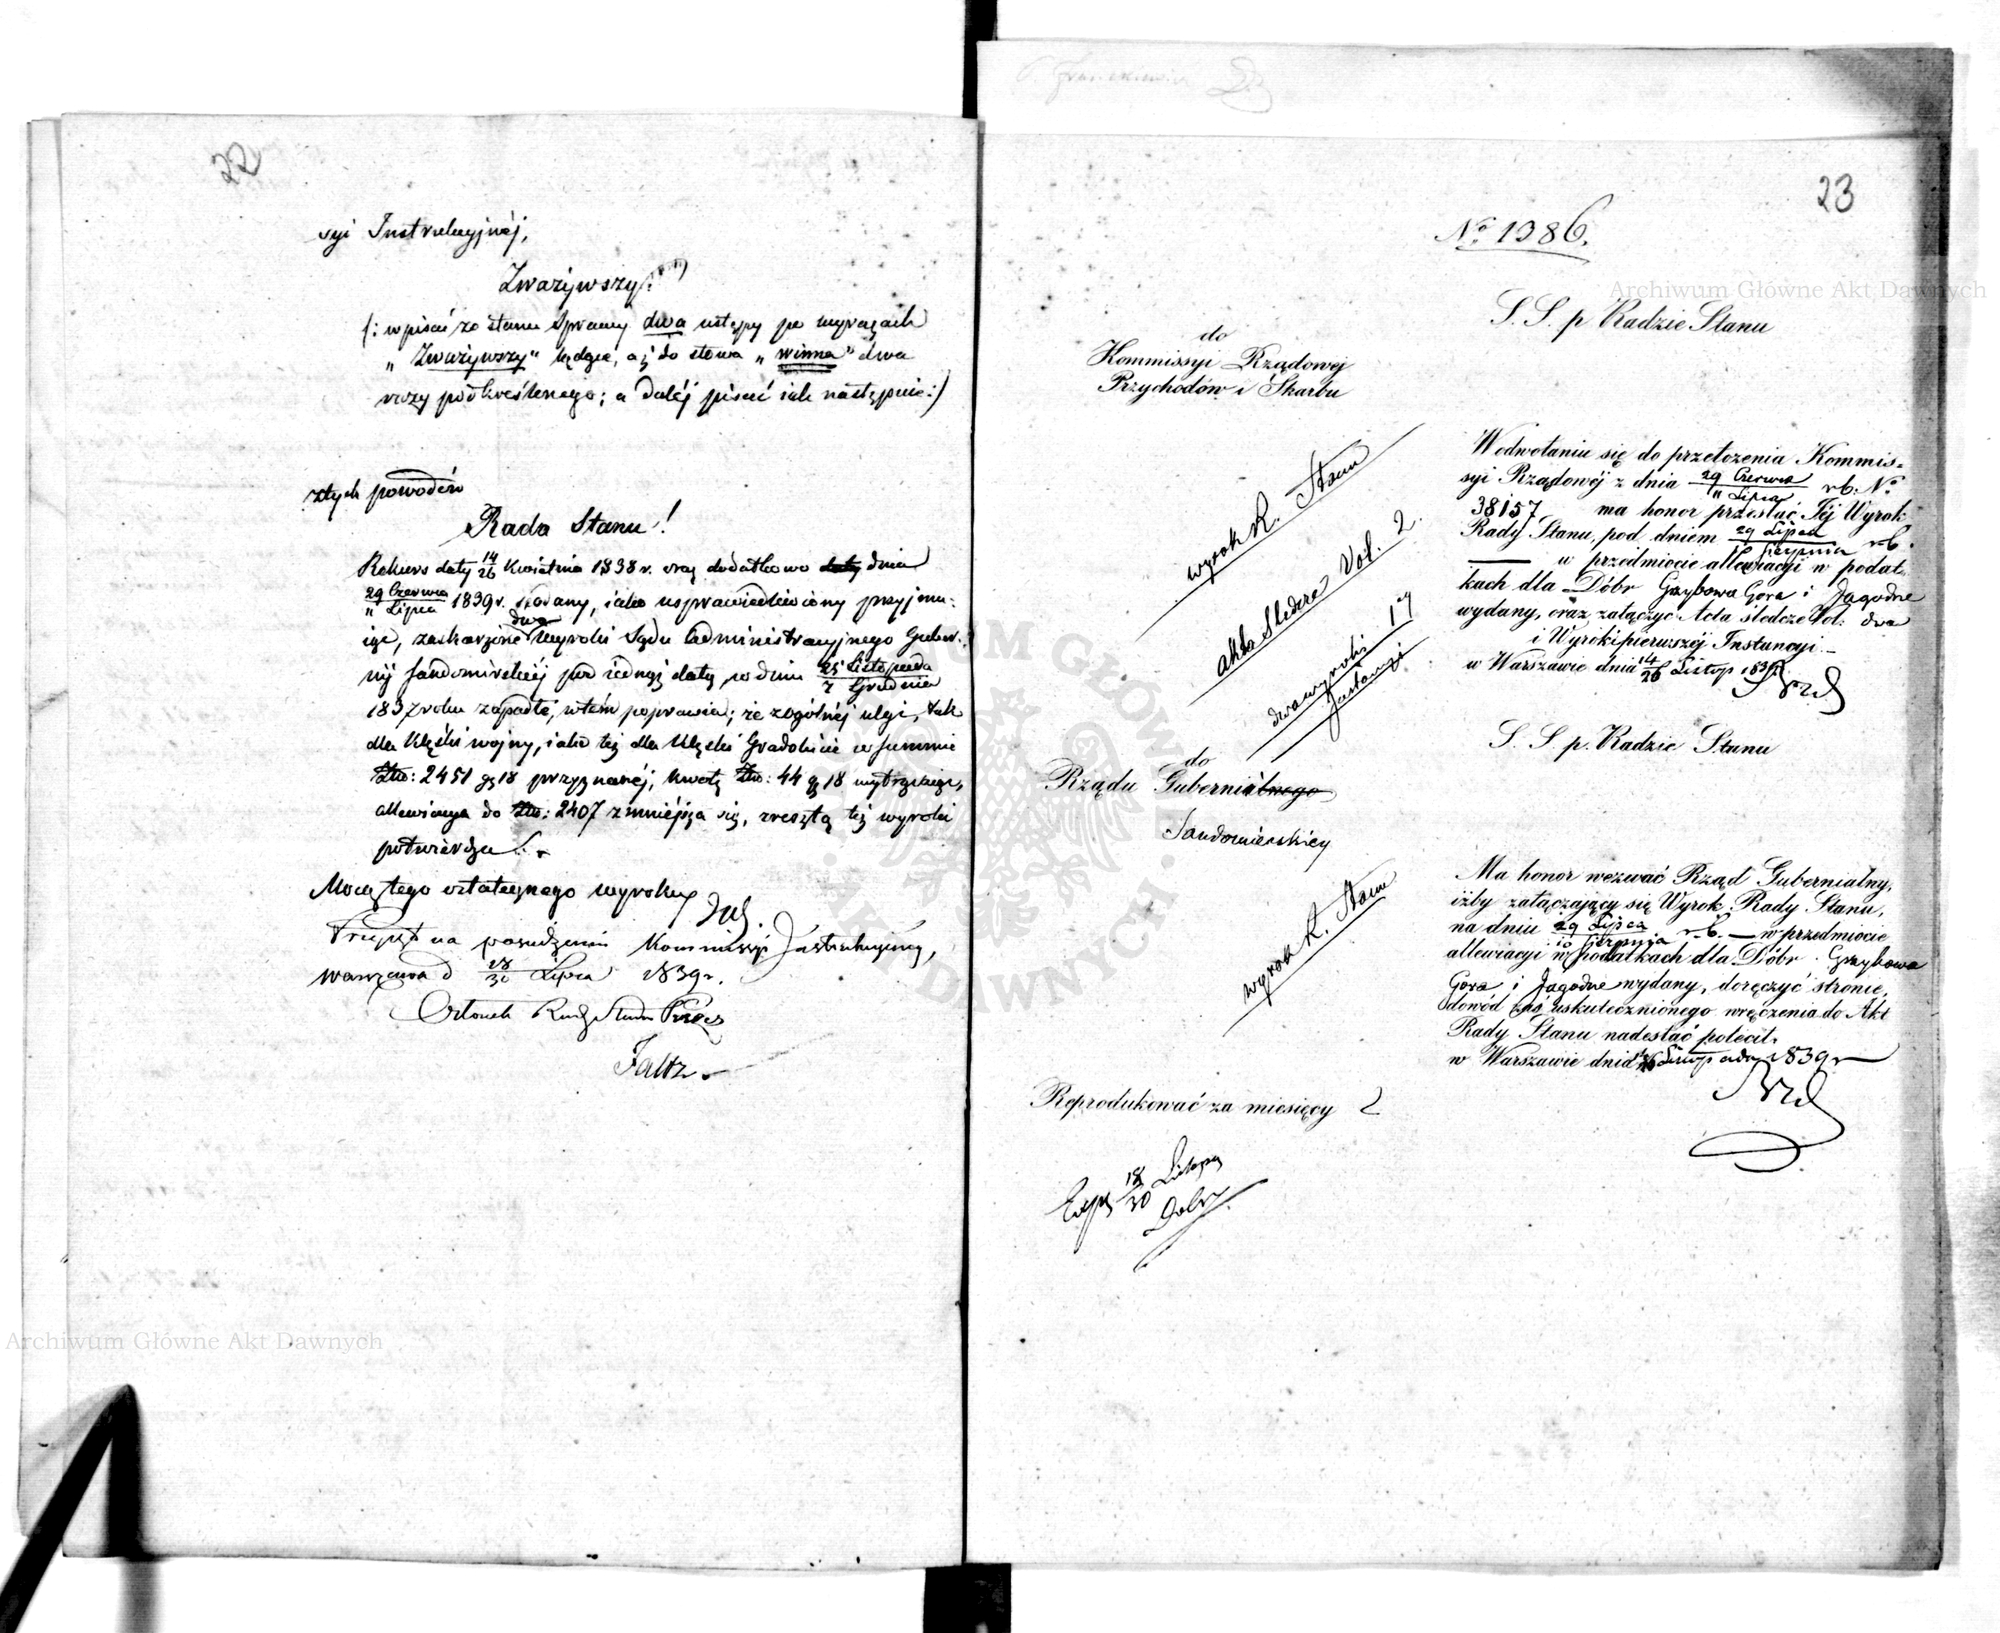 22
syi Instrukcyjnéj,
Zważywszy:
(: wpisać ze stanu Sprawy dwa ustępy po wyrazach
„Zważywszy" będące, aż do słowa „winna" dwa
razy podkreślonego; a daléj pisać jak następuie:)
z tych powodów
Rada Stanu!
Rekurs daty 14/26 Kwietnia 1838 r. oraz dodatkowo daty dnia
29 Czerwca / 11 Lipca 1839 r. podany, iako usprawiedliwiony przyjmu-
iąc, zaskarżone dwa wyroki Sądu Administracyjnego Guber-
nij Sandomirskiéj pod iednąż datą, w dniu 25 Listopada / 7 Grudnia
1837 roku zapadłe, w tém poprawia; że z ogólnéj ulgi, tak
dla klęski wojny, iako też dla klęski Gradobicia w summie
Złp: 2451 g 18 przyznanéj, kwotę Złp: 44 g 18 wytrąciwszy,
allewiacya do Złp: 2407 zmniejsza się, zresztą też wyroki
potwierdza.
Mocą tego ostatecznego wyroku
Przyjęto na posiedzeniu Kommissyi Instrukcyjney,
Warszawa d 18/30 Lipca 1839 r.
Członek Rady Stanu Prezes
Faltz
23
No 1386.
S. S. p Radzie Stanu
do
Kommissyi Rządowej
Przychodów i Skarbu
W odwołaniu się do przełożenia Kommis-
syi Rządowéj z dnia 29 Czerwca / 11 Lipca r.b. No
38157 ma honor przesłać Téj Wyrok
Rady Stanu, pod dniem 29 Lipca / 10 Sierpnia r.b.
w przedmiocie allewiacyi w podat-
kach dla Dóbr Grzybowa Gora i Jagodne
wydany, oraz załączyć Acta śledcze Vol: dwa
i Wyroki pierwszéj Instancyi.
w Warszawie dnia 14/26 Listop 1839 r.
wyrok R. Stanu
akta Sledcze Vol. 2.
dwa wyroki 1ej
Instancyi
S. S. p. Radzie Stanu
do
Rządu Gubernialnego
Sandomierskiey
Ma honor wezwać Rząd Gubernialny,
iżby załączający się Wyrok Rady Stanu,
na dniu 29 Lipca / 10 Sierpnia r.b. w przedmiocie
allewiacyi w podatkach dla Dóbr Grzybowa
Gora i Jagodne wydany, doręczyć stronie,
dowód zaś uskutecznionego wręczenia do Akt
Rady Stanu nadesłać polecił.
w Warszawie dnia 14/26 Listopada 1839 r
wyrok R. Stanu
Reprodukować za miesięcy 2
Exp 18/30 Listopa
Archiwum Główne Akt Dawnych
Archiwum Główne Akt Dawnych